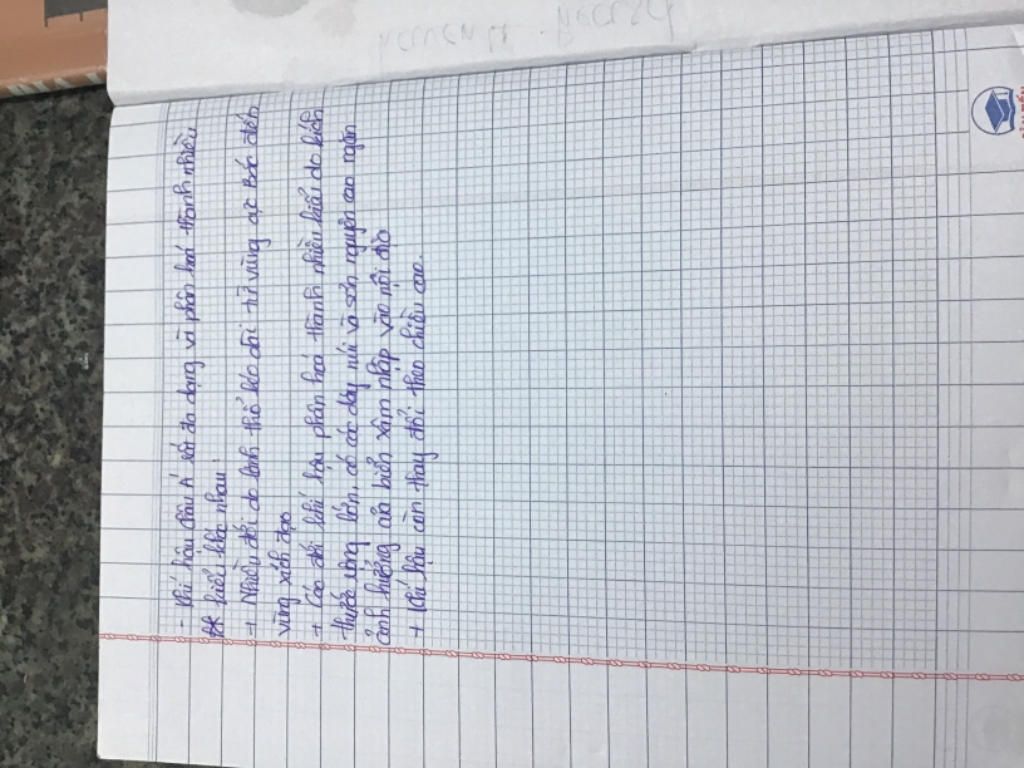 - Khí hậu châu Á rất đa dạng và phân hoá thành nhiều
kiểu khác nhau:
+ Nhiều đới do lãnh thổ kéo dài từ vùng cực Bắc đến
vùng xích đạo
+ Các đới khí hậu phân hoá thành nhiều kiểu do kích
thước rộng lớn, có các dãy núi và sơn nguyên cao ngăn
ảnh hưởng của biển xâm nhập vào nội địa
+ Khí hậu còn thay đổi theo chiều cao.